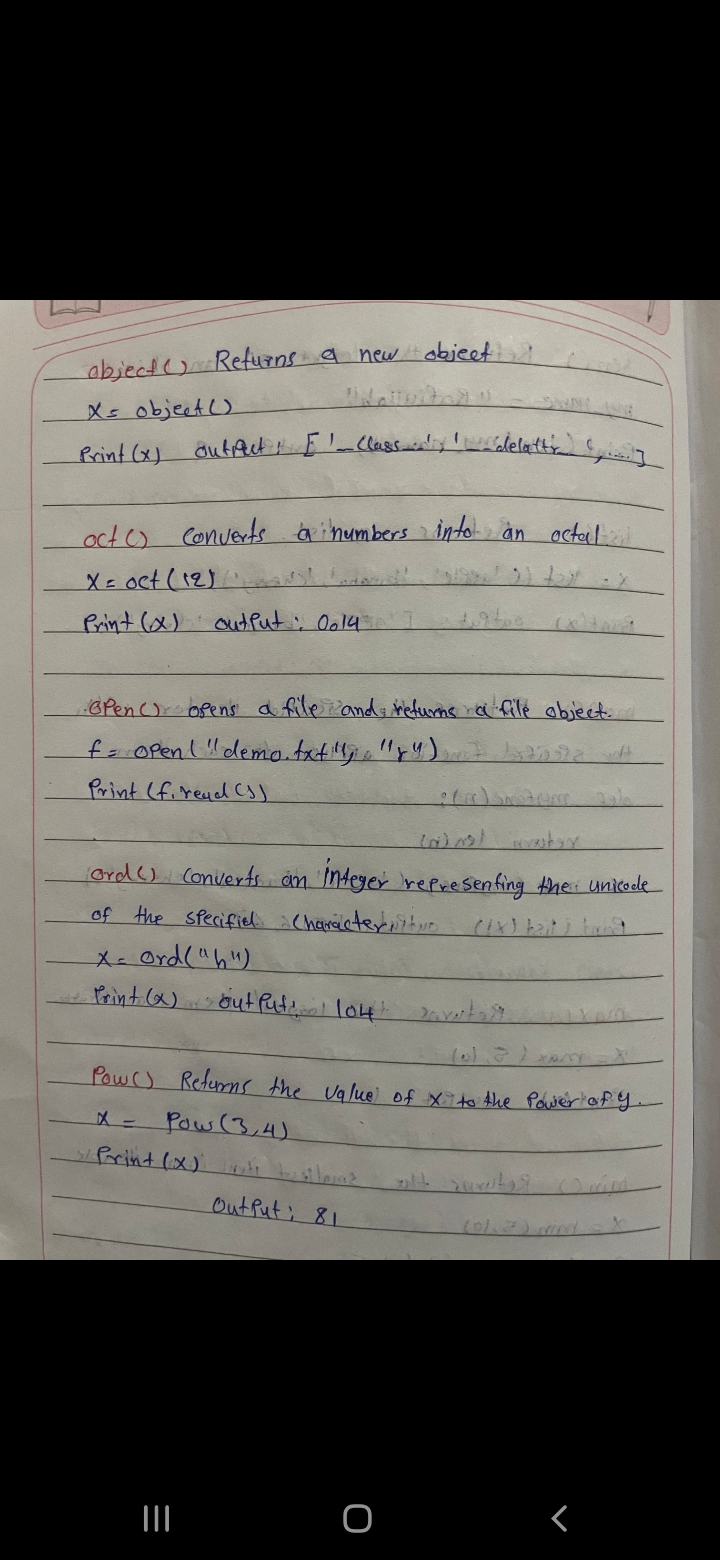 object() Returns a new object
x = object()
Print(x) output: ['__class__', '__delattr__', ....]
oct() converts a numbers into an octal
x = oct(12)
Print(x) output: 0o14
open() opens a file and returns a file object.
f = open("demo.txt", "r")
Print(f.read())
ord() converts an integer representing the unicode
of the specified character.
x = ord("h")
Print(x) output: 104
Pow() Returns the value of x to the Power of y.
x = Pow(3,4)
Print(x)
Output: 81